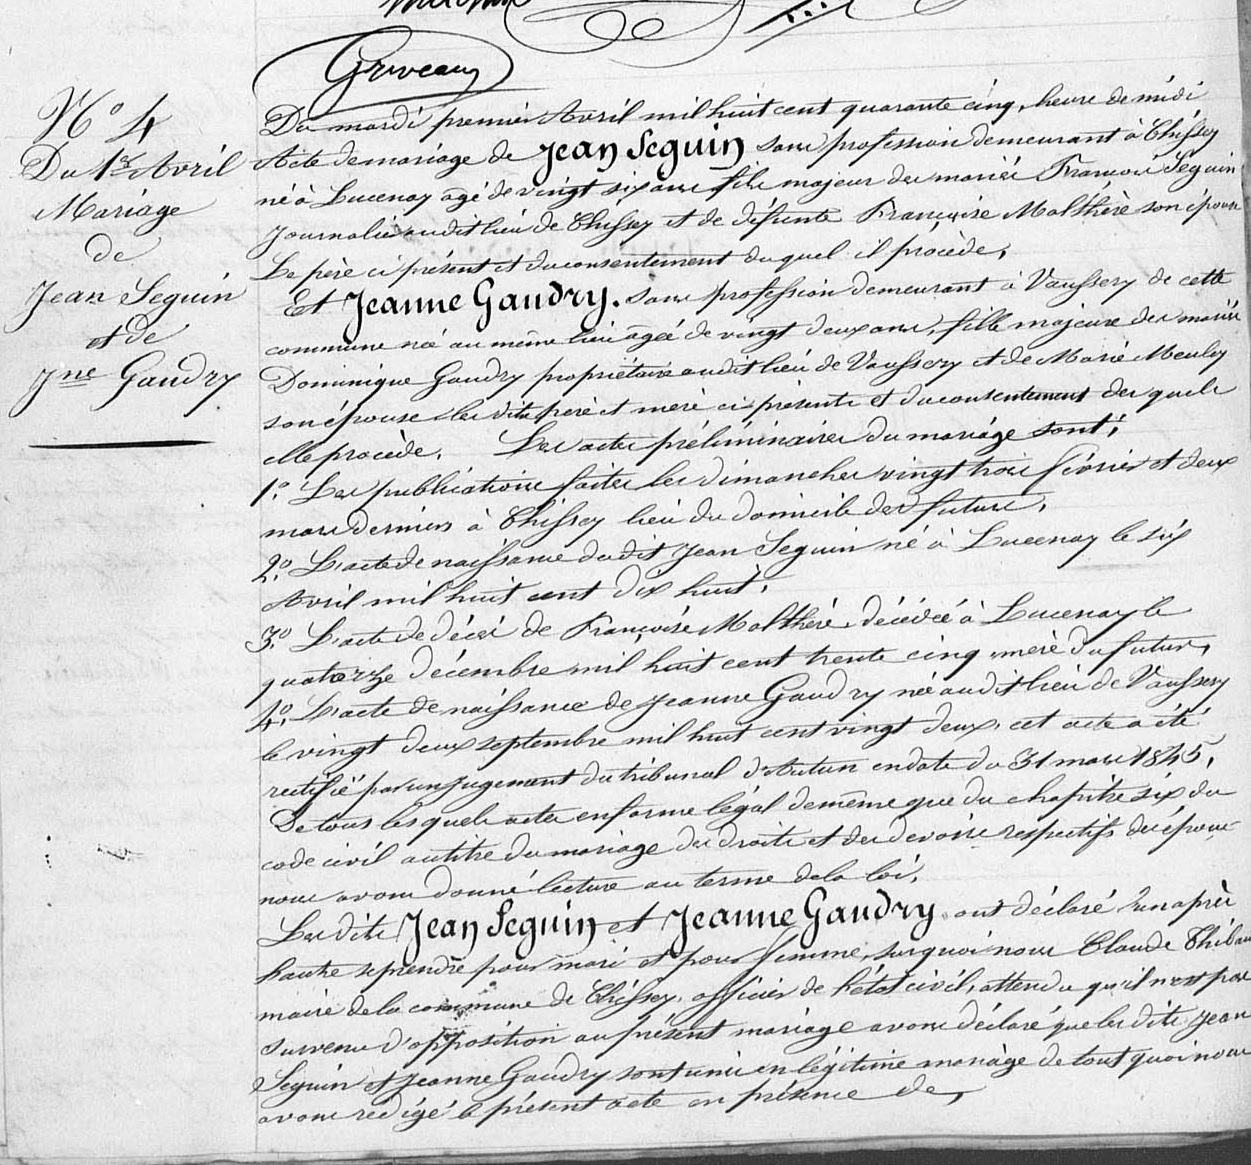 Griveau
N° 4
Du 1er Avril
Mariage
de
Jean Seguin
et de
Jne Gaudry
Du mardi premier Avril mil huit cent quarante cinq, heure de midi
Acte de mariage de Jean Seguin sans profession demeurant à Chissey
né à Lucenay agé de vingt six ans fils majeur des mariés François Seguin
journalier audit lieu de Chissey et de défunte Françoise Malthère son épouse
Le père ci présent et du consentement duquel il procède,
Et Jeanne Gaudry. sans profession demeurant à Vaussery de cette
commune née au même lieu agée de vingt deux ans, fille majeure des mariés
Dominique Gaudry propriétaire audit lieu de Vaussery et de Marie Meuley
son épouse les dits père et mère ci présents et du consentement des quels
elle procède. Les actes préliminaires du mariage sont:
1.° Les publications faites les dimanches vingt trois février et deux
mars derniers à Chissey lieu du domicile des futurs,
2.° L'acte de naissance dudit Jean Seguin né à Lucenay le six
Avril mil huit cent dix huit,
3.° L'acte de décès de Françoise Malthère décédée à Lucenay le
quatorze décembre mil huit cent trente cinq mère du futur,
4.° L'acte de naissance de Jeanne Gaudry née audit lieu de Vaussery
le vingt deux septembre mil huit cent vingt deux, cet acte a été
rectifié par un jugement du tribunal d'Autun en date du 31 mars 1845,
De tous les quels actes en forme légal de même que du chapitre six du
code civil au titre du mariage des droits et des devoirs respectifs des époux
nous avons donné lecture au terme de la loi,
Les dits Jean Seguin et Jeanne Gaudry ont déclaré l'un après
l'autre se prendre pour mari et pour femme, sur quoi nous Claude Thibau
maire de la commune de Chissey, officier de l'état civil, attendu qu'il n'est pas
survenu d'opposition au présent mariage avons déclaré que les dits Jean
Seguin et Jeanne Gaudry sont unis en légitime mariage de tout quoi nous
avons rédigé le présent acte en présence de,